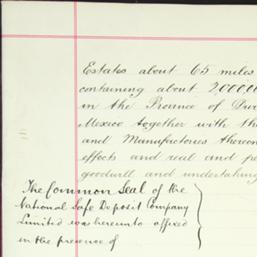 Estates about 65 miles
containing about 2,000,0
in the Province of Du
Mexico together with th
and Manufactories thereon
effects and real and pe
goodwill and undertaking
The Common Seal of the
National Safe Deposit Company
Limited was hereunto affixed
in the presence of